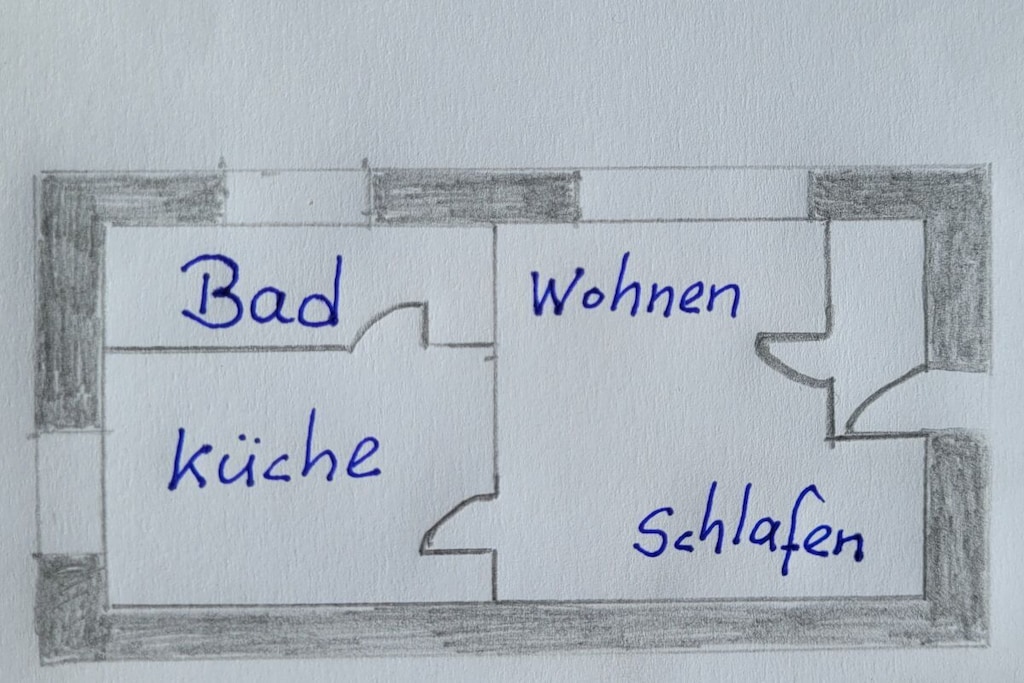 Bad
Wohnen
Küche
Schlafen